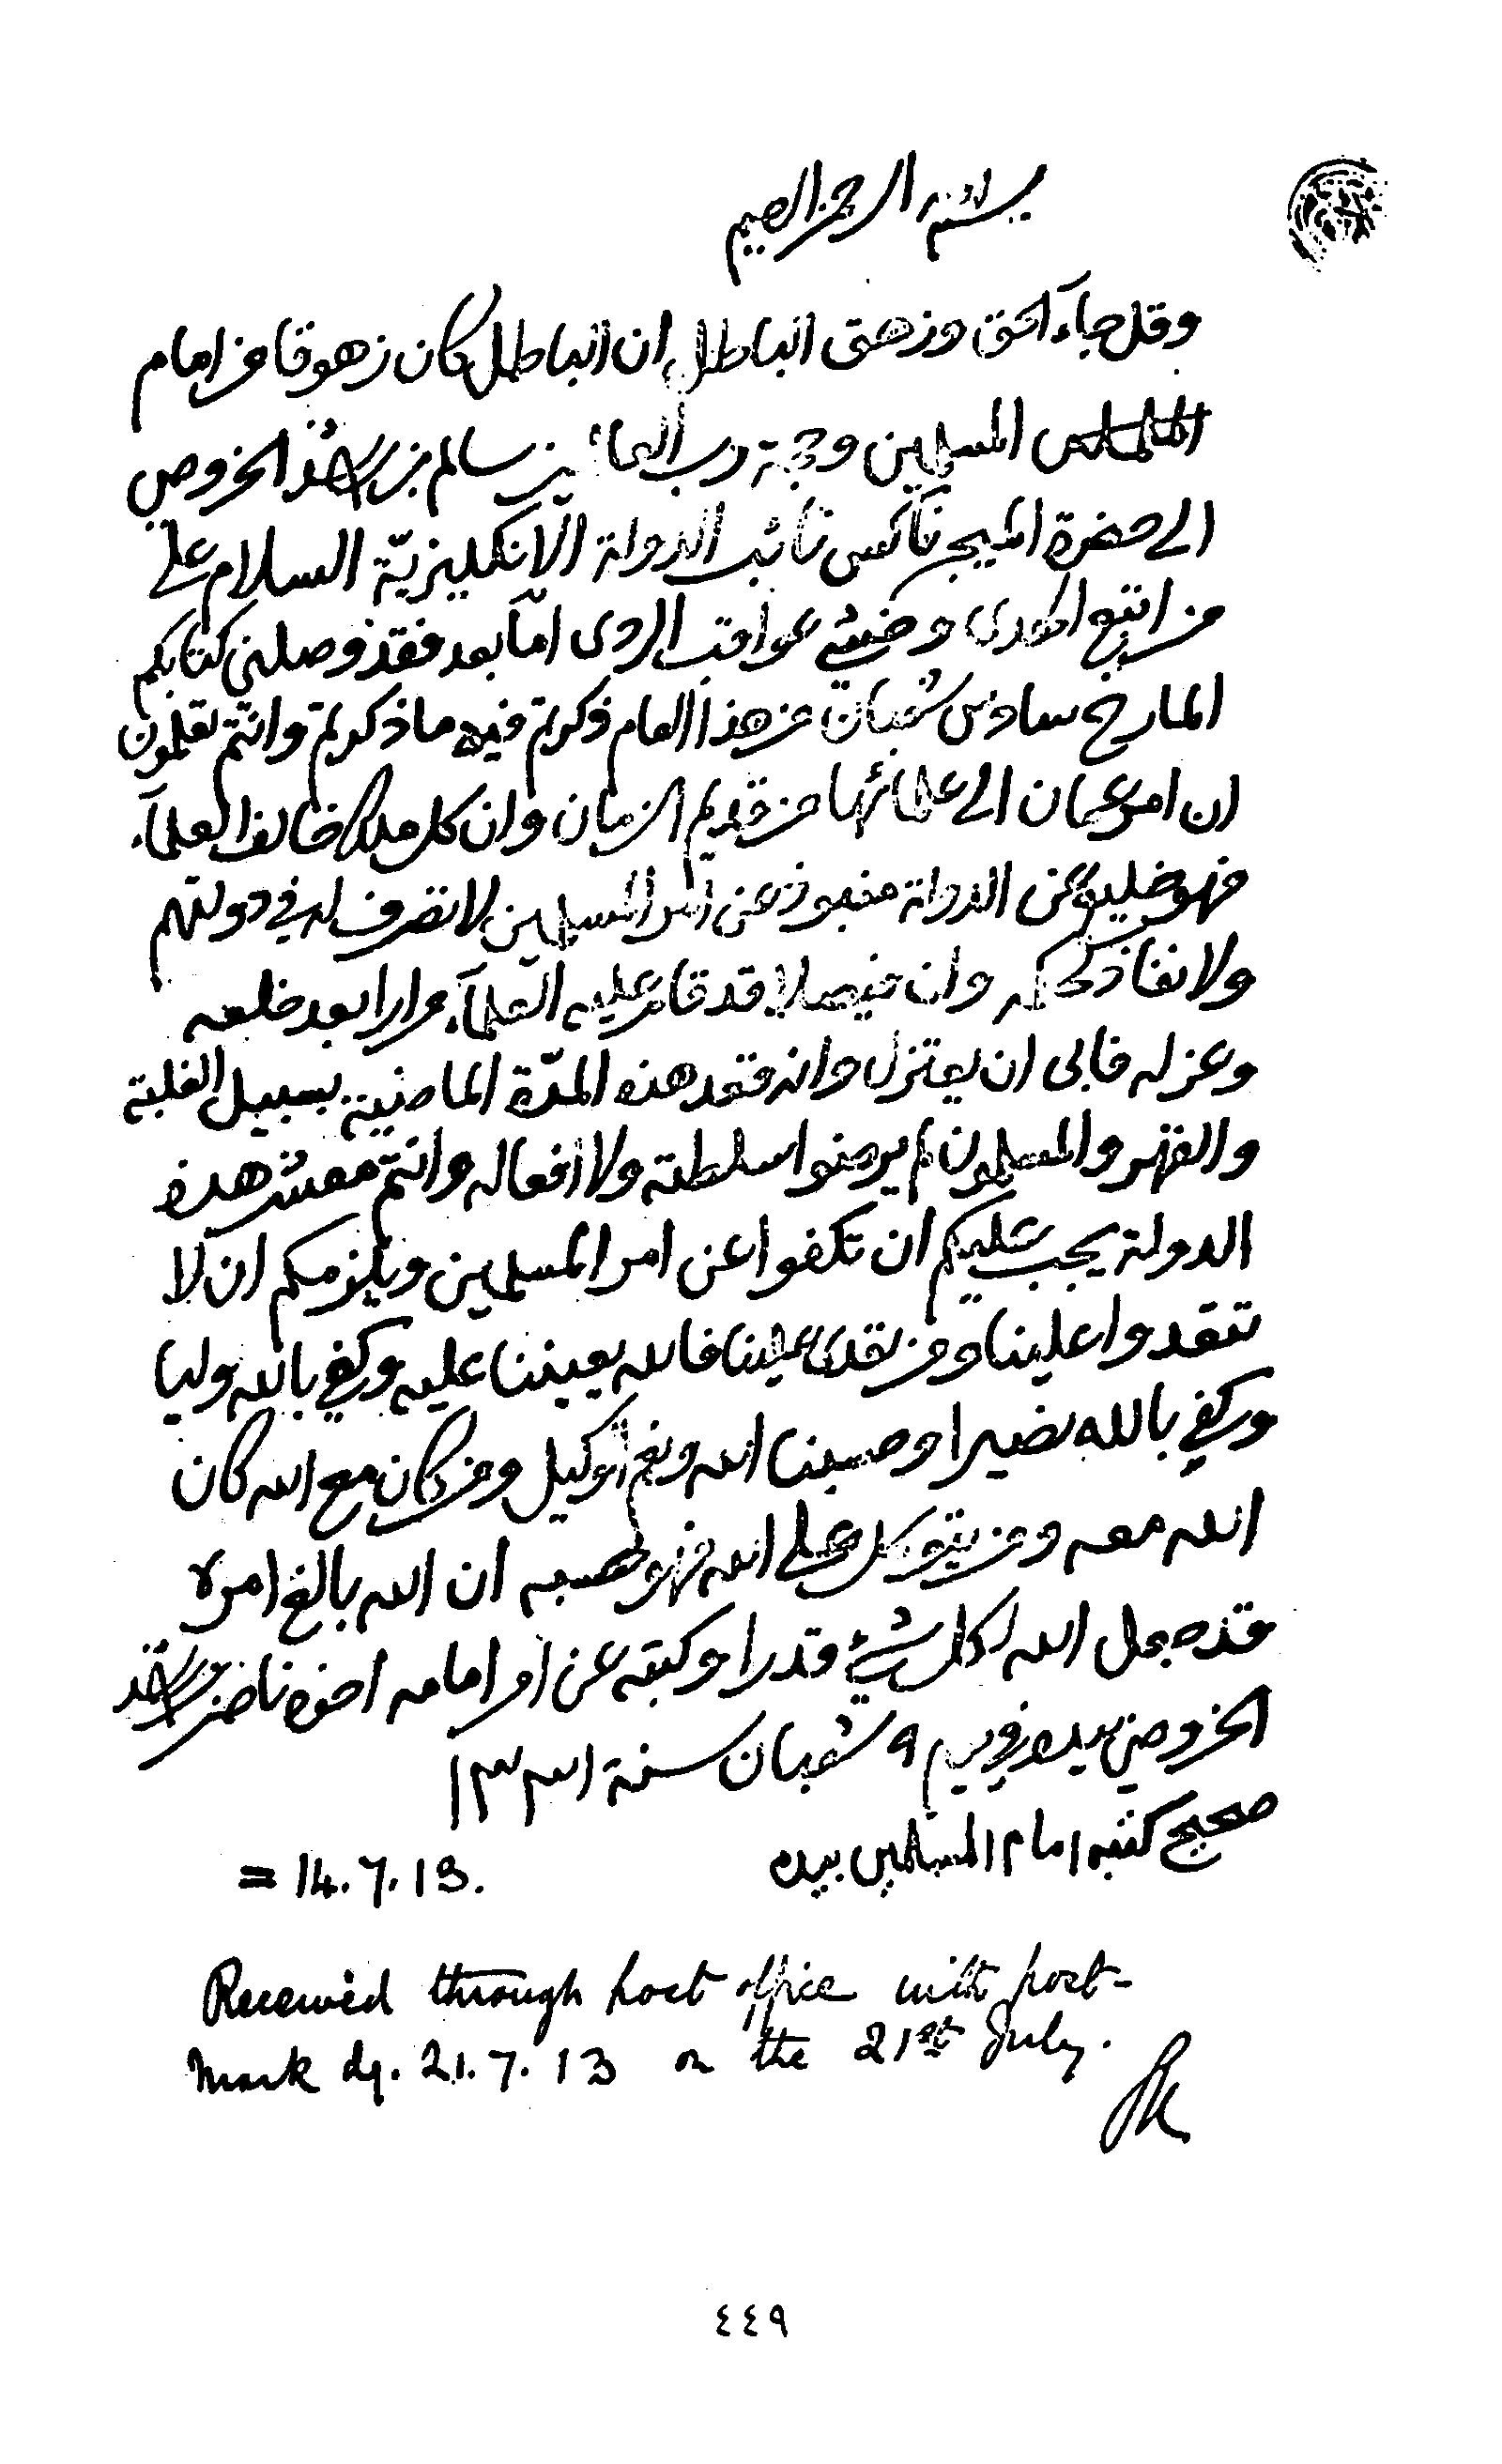 بسم الله الرحمن الرحيم
وقل جآء الحق وزهق الباطل ان الباطل كان زهوقا من امام
المسلمين وحجة رب العالمين سالم بن راشد الخروصي
الى حضرة الميجر ناكس نائب الدولة الانكليزيّة السلام على
من اتبع الهدى وخشي عواقب الردى امّا بعد فقد وصلني كتابكم
المارخ سادس شعبان من هذا العام ذكرتم فيه ما ذكرتم وانتم تعلمون
ان امر عمان الى علمائها من قديم الزمان وان كل ملك خالف العلمآء
فهو خليع عن الدولة منبوذ عن امر المسلمين لا تصرف له في دولتهم
ولا نفاذ لحكمه وان فيصلا قد قام عليه العلمآء مرارا بعد خلعه
وعزله فابى ان يعتزل وانه قعد هذه المدّة الماضية بسبيل الغلبة
والقهر والمسلمون لم يرضوا سلطته ولا افعاله وانتم معشر هذه
الدولة يجب عليكم ان تكفوا عن امر المسلمين ويلزمكم ان لا
تتعدوا علينا ومن تعدى علينا فالله يعيننا عليه وكفى بالله وليا
وكفى بالله نصيرا وحسبنا الله ونعم الوكيل ومن كان مع الله كان
الله معه ومن يتوكل على الله فهو حسبه ان الله بالغ امره
قد جعل الله لكل شيء قدرا وكتبه عن امر امامه اخوه ناصر بن راشد
الخروصي بيده في يوم ٩ شعبان سنة ١٣٣١
صحيح كتبه امام المسلمين بيده
= 14.7.13.
Received through post office with post-
mark dy. 21.7.13 on the 21st July.
٤٤٩